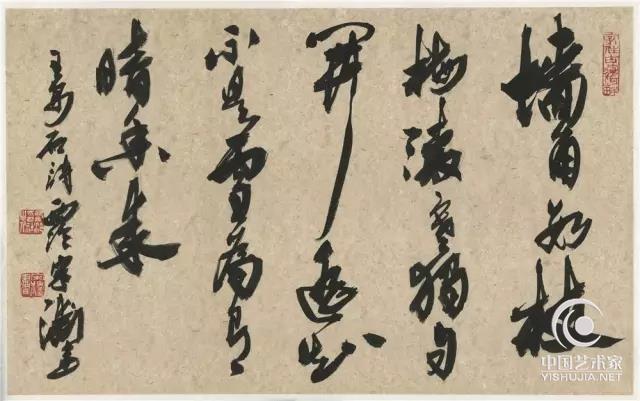 墙角数枝
梅凌寒獨自
開遥知
不是雪為有
暗香来
王安石詩
中国艺术家
YISHUJIA.NET